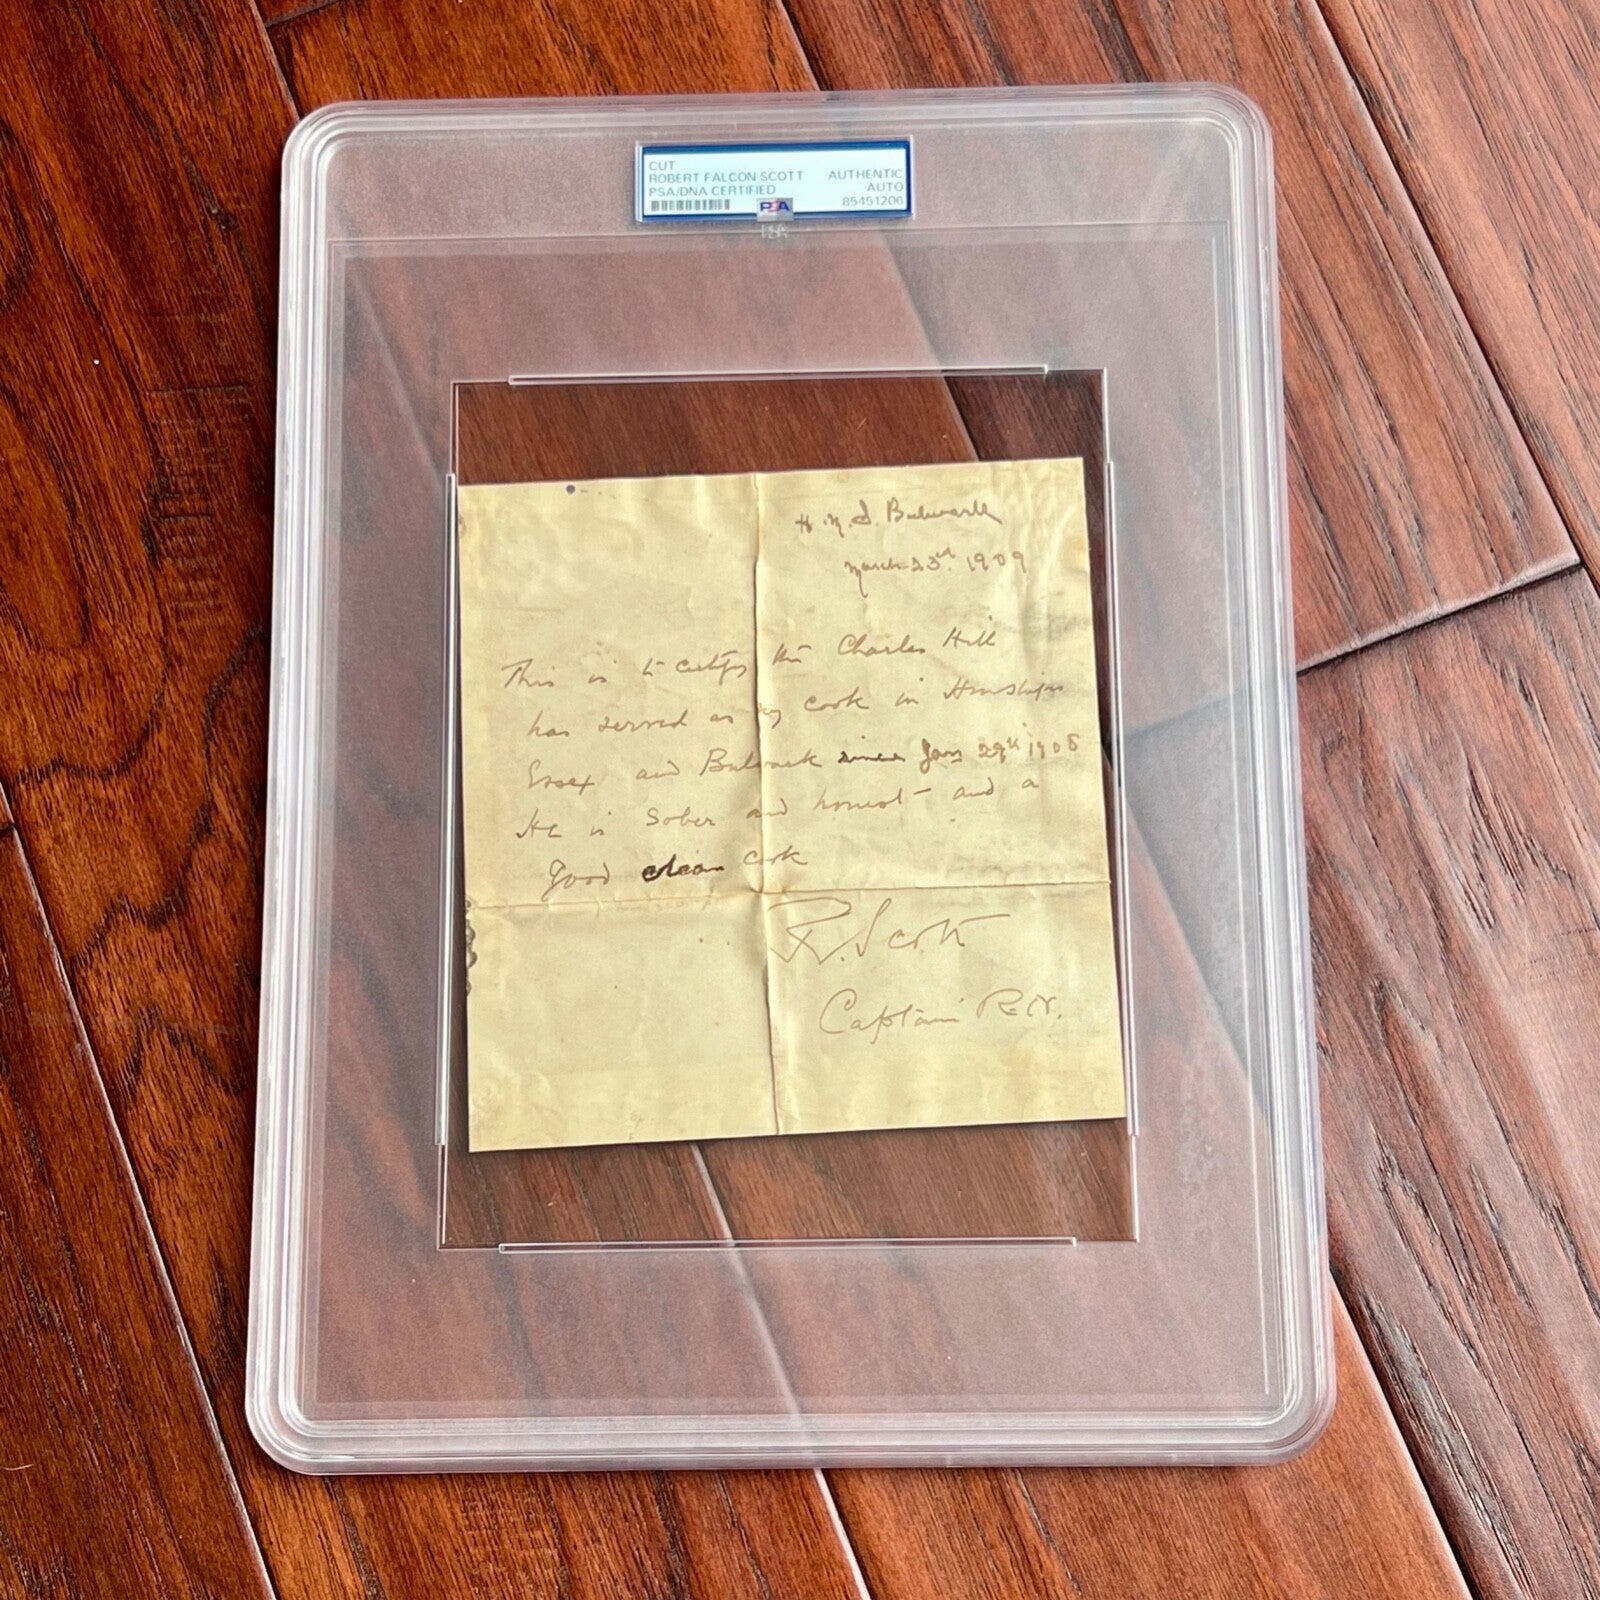 CUT
ROBERT FALCON SCOTT AUTHENTIC
PSA/DNA CERTIFIED AUTO
PSA 85451206
H.M.S. Bulwark
March 23rd. 1909
This is to certify that Charles Hill
has served as my cook in H M Ships
Essex and Bulwark since Jany 29th 1908
He is sober and honest - and a
good clean cook
R. Scott
Captain R.N.